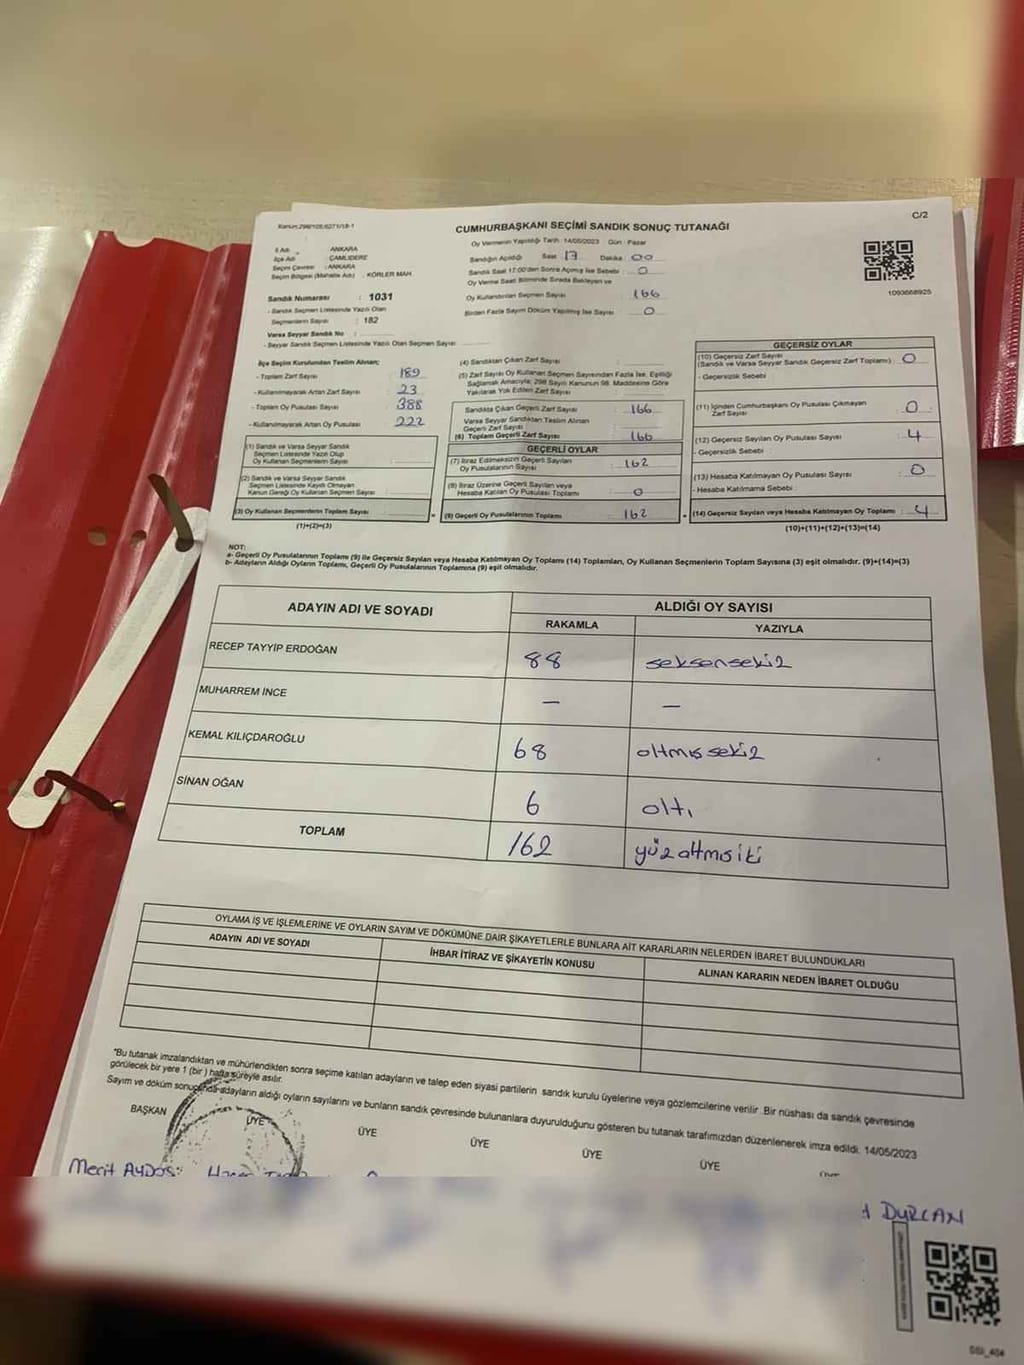 Kanun:298/105;6271/18-1
CUMHURBAŞKANI SEÇİMİ SANDIK SONUÇ TUTANAĞI
C/2
Oy Vermenin Yapıldığı Tarih : 14/05/2023 Gün : Pazar
İl Adı : ANKARA
İlçe Adı : ÇAMLIDERE
Seçim Çevresi : ANKARA
Seçim Bölgesi (Mahalle Adı) : KÖRLER MAH.
Sandığın Açıldığı Saat 17 Dakika 00
Sandık Saat 17:00'den Sonra Açılmış İse Sebebi : 0
Oy Verme Saati Bitiminde Sırada Bekleyen ve
Oy Kullandırılan Seçmen Sayısı 166
Birden Fazla Sayım Döküm Yapılmış İse Sayısı 0
1093668925
Sandık Numarası : 1031
- Sandık Seçmen Listesinde Yazılı Olan
Seçmenlerin Sayısı : 182
Varsa Seyyar Sandık No :
- Seyyar Sandık Seçmen Listesinde Yazılı Olan Seçmen Sayısı:
İlçe Seçim Kurulundan Teslim Alınan;
- Toplam Zarf Sayısı 189
- Kullanılmayarak Artan Zarf Sayısı 23
- Toplam Oy Pusulası Sayısı 388
- Kullanılmayarak Artan Oy Pusulası 222
(1) Sandık ve Varsa Seyyar Sandık
Seçmen Listesinde Yazılı Olup
Oy Kullanan Seçmenlerin Sayısı
(2) Sandık ve Varsa Seyyar Sandık
Seçmen Listesinde Kayıtlı Olmayan
Kanun Gereği Oy Kullanan Seçmen Sayısı
(3) Oy Kullanan Seçmenlerin Toplam Sayısı
=
(1)+(2)=(3)
(4) Sandıktan Çıkan Zarf Sayısı :
(5) Zarf Sayısı Oy Kullanan Seçmen Sayısından Fazla İse, Eşitliği
Sağlamak Amacıyla; 298 Sayılı Kanunun 98. Maddesine Göre
Yakılarak Yok Edilen Zarf Sayısı
Sandıkta Çıkan Geçerli Zarf Sayısı 166
Varsa Seyyar Sandıktan Teslim Alınan
Geçerli Zarf Sayısı
(6) Toplam Geçerli Zarf Sayısı 166
GEÇERLİ OYLAR
(7) İtiraz Edilmeksizin Geçerli Sayılan
Oy Pusulalarının Sayısı : 162
(8) İtiraz Üzerine Geçerli Sayılan veya
Hesaba Katılan Oy Pusulası Toplamı 0
(9) Geçerli Oy Pusulalarının Toplamı 162
GEÇERSİZ OYLAR
(10) Geçersiz Zarf Sayısı
(Sandık ve Varsa Seyyar Sandık Geçersiz Zarf Toplamı) : 0
- Geçersizlik Sebebi
(11) İçinden Cumhurbaşkanı Oy Pusulası Çıkmayan
Zarf Sayısı 0
(12) Geçersiz Sayılan Oy Pusulası Sayısı 4
- Geçersizlik Sebebi
(13) Hesaba Katılmayan Oy Pusulası Sayısı : 0
- Hesaba Katılmama Sebebi
(14) Geçersiz Sayılan veya Hesaba Katılmayan Oy Toplamı 4
(10)+(11)+(12)+(13)=(14)
NOT:
a- Geçerli Oy Pusulalarının Toplamı (9) ile Geçersiz Sayılan veya Hesaba Katılmayan Oy Toplamı (14) Toplamları, Oy Kullanan Seçmenlerin Toplam Sayısına (3) eşit olmalıdır. (9)+(14)=(3)
b- Adayların Aldığı Oyların Toplamı, Geçerli Oy Pusulalarının Toplamına (9) eşit olmalıdır.
ADAYIN ADI VE SOYADI
ALDIĞI OY SAYISI
RAKAMLA YAZIYLA
RECEP TAYYİP ERDOĞAN 88 seksensekiz
MUHARREM İNCE — —
KEMAL KILIÇDAROĞLU 68 altmış sekiz
SİNAN OĞAN 6 altı
TOPLAM 162 yüzaltmışiki
OYLAMA İŞ VE İŞLEMLERİNE VE OYLARIN SAYIM VE DÖKÜMÜNE DAİR ŞİKAYETLERLE BUNLARA AİT KARARLARIN NELERDEN İBARET BULUNDUKLARI
ADAYIN ADI VE SOYADI İHBAR İTİRAZ VE ŞİKAYETİN KONUSU ALINAN KARARIN NEDEN İBARET OLDUĞU
"Bu tutanak imzalandıktan ve mühürlendikten sonra seçime katılan adayların ve talep eden siyasi partilerin sandık kurulu üyelerine veya gözlemcilerine verilir .Bir nüshası da sandık çevresinde
görülecek bir yere 1 (bir ) hafta süreyle asılır.
Sayım ve döküm sonucunda adayların aldığı oyların sayılarını ve bunların sandık çevresinde bulunanlara duyurulduğunu gösteren bu tutanak tarafımızdan düzenlenerek imza edildi. 14/05/2023
BAŞKAN ÜYE ÜYE ÜYE ÜYE ÜYE
DURCAN